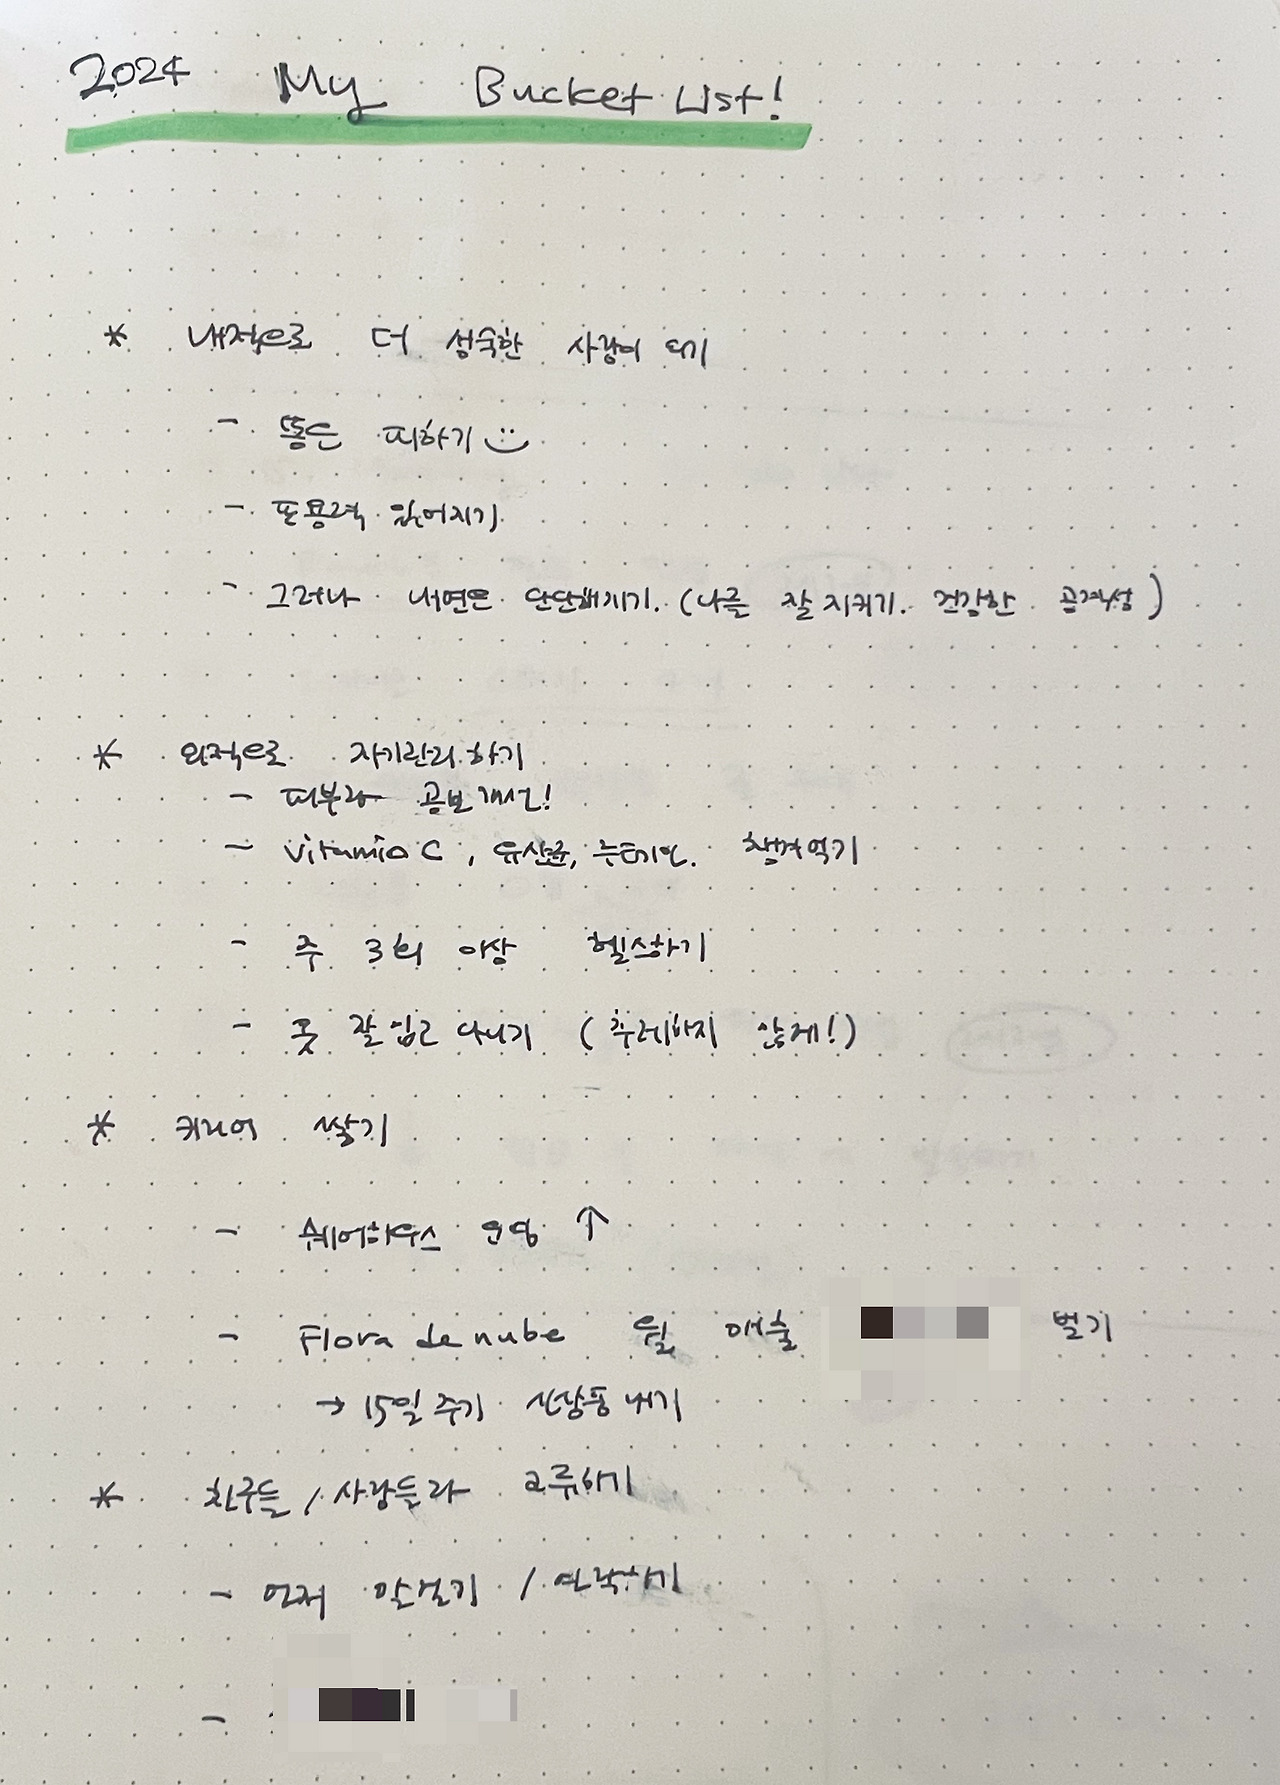 2024 My Bucket List!
* 내적으로 더 성숙한 사람이 되기
- 똥은 피하기
- 포용력 있어지기
- 그러나 내면은 단단해지기. (나를 잘 지키기. 건강한 공격성)
* 외적으로 자기관리하기
- 피부과 공보 개선!
- Vitamin C, 유산균, 루테인. 챙겨먹기
- 주 3회 이상 헬스하기
- 옷 잘 입고 다니기 (추레하지 않게!)
* 커리어 쌓기
- 쉐어하우스 운영 ↑
- Flora de nube 월 매출 벌기
→ 15일 주기 신상품 내기
* 친구들 / 사람들과 교류하기
- 먼저 말걸기 / 연락하기
-